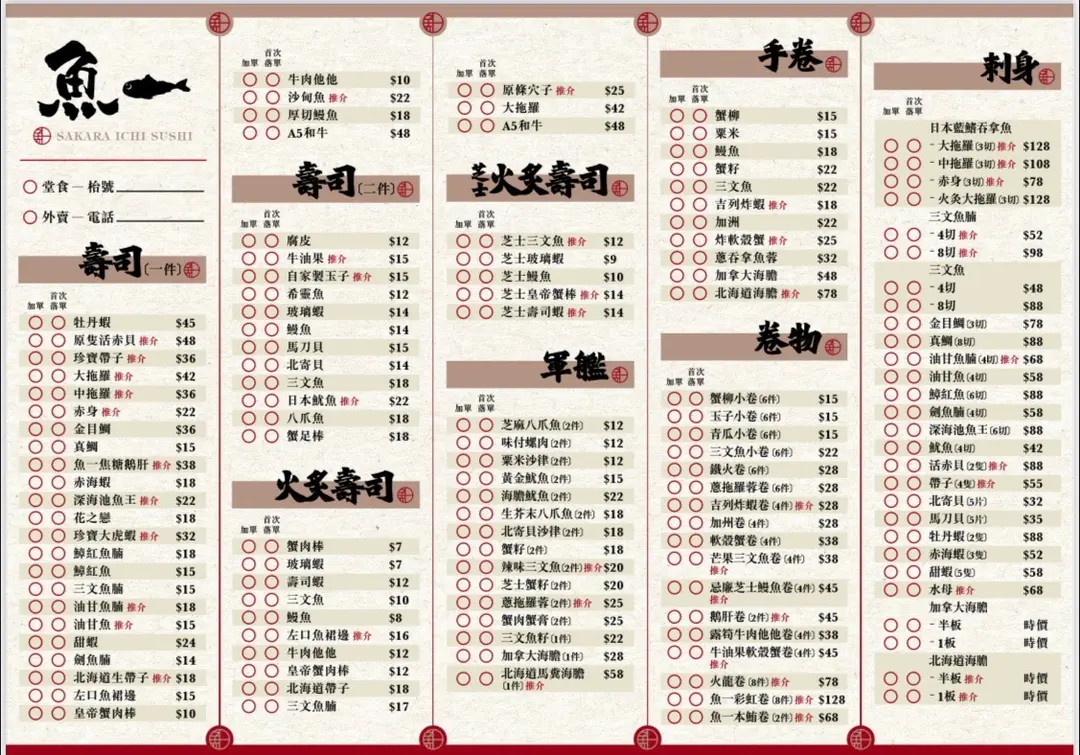 魚一
SAKARA ICHI SUSHI
堂食 — 枱號
外賣 — 電話
壽司(一件)
加單 首次落單
牡丹蝦 $45
原隻活赤貝 推介 $48
珍寶帶子 推介 $36
大拖羅 推介 $42
中拖羅 推介 $36
赤身 推介 $22
金目鯛 $36
真鯛 $15
魚一焦糖鵝肝 推介 $38
赤海蝦 $18
深海池魚王 推介 $22
花之戀 $18
珍寶大虎蝦 推介 $32
鱆紅魚腩 $18
鱆紅魚 $15
三文魚腩 $15
油甘魚腩 推介 $18
油甘魚 推介 $15
甜蝦 $24
劍魚腩 $14
北海道生帶子 推介 $18
左口魚裙邊 $15
皇帝蟹肉棒 $10
加單 首次落單
牛肉他他 $10
沙甸魚 推介 $22
厚切鰻魚 $18
A5和牛 $48
壽司(二件)
加單 首次落單
腐皮 $12
牛油果 推介 $15
自家製玉子 推介 $15
希靈魚 $12
玻璃蝦 $14
鰻魚 $14
馬刀貝 $15
北寄貝 $14
三文魚 $18
日本魷魚 推介 $22
八爪魚 $18
蟹足棒 $18
火炙壽司
加單 首次落單
蟹肉棒 $7
玻璃蝦 $7
壽司蝦 $12
三文魚 $10
鰻魚 $8
左口魚裙邊 推介 $16
牛肉他他 $12
皇帝蟹肉棒 $12
北海道帶子 $18
三文魚腩 $17
加單 首次落單
原條穴子 推介 $25
大拖羅 $42
A5和牛 $48
芝士火炙壽司
加單 首次落單
芝士三文魚 推介 $12
芝士玻璃蝦 $9
芝士鰻魚 $10
芝士皇帝蟹棒 推介 $14
芝士壽司蝦 推介 $14
軍艦
加單 首次落單
芝麻八爪魚(2件) $12
味付螺肉(2件) $12
粟米沙律(2件) $12
黃金魷魚(2件) $15
海膽魷魚(2件) $22
生芥末八爪魚(2件) $18
北寄貝沙律(2件) $18
蟹籽(2件) $18
辣味三文魚(2件)推介 $20
芝士蟹籽(2件) $20
蔥拖羅蓉(2件)推介 $25
蟹肉蟹膏(2件) $25
三文魚籽(1件) $22
加拿大海膽(1件) $28
北海道馬糞海膽 $58
(1件)推介
手卷
加單 首次落單
蟹柳 $15
粟米 $15
鰻魚 $18
蟹籽 $22
三文魚 $22
吉列炸蝦 推介 $18
加洲 $22
炸軟殼蟹 推介 $25
蔥吞拿魚蓉 $32
加拿大海膽 $48
北海道海膽 推介 $78
卷物
加單 首次落單
蟹柳小卷(6件) $15
玉子小卷(6件) $15
青瓜小卷(6件) $15
三文魚小卷(6件) $22
鐵火卷(6件) $28
蔥拖羅蓉卷(6件) $28
吉列炸蝦卷(4件)推介 $28
加州卷(4件) $28
軟殼蟹卷(4件) $38
芒果三文魚卷(4件) $38
推介
忌廉芝士鰻魚卷(4件) $45
推介
鵝肝卷(2件)推介 $45
露筍牛肉他他卷(4件) $38
牛油果軟殼蟹卷(4件) $45
推介
火龍卷(8件)推介 $78
魚一彩虹卷(8件)推介 $128
魚一本鮪卷(2件)推介 $68
刺身
加單 首次落單
日本藍鰭吞拿魚
- 大拖羅(3切)推介 $128
- 中拖羅(3切)推介 $108
- 赤身(3切)推介 $78
- 火炙大拖羅(3切) $128
三文魚腩
- 4切 推介 $52
- 8切 推介 $98
三文魚
- 4切 $48
- 8切 $88
金目鯛(3切) $78
真鯛(8切) $88
油甘魚腩(4切)推介 $68
油甘魚(4切) $58
鱆紅魚(6切) $88
劍魚腩(4切) $58
深海池魚王(6切) $88
魷魚(4切) $42
活赤貝(2隻)推介 $88
帶子(4隻)推介 $55
北寄貝(5片) $32
馬刀貝(5片) $35
牡丹蝦(2隻) $88
赤海蝦(3隻) $52
甜蝦(5隻) $58
水母 推介 $68
加拿大海膽
- 半板 時價
- 1板 時價
北海道海膽
- 半板 推介 時價
- 1板 推介 時價